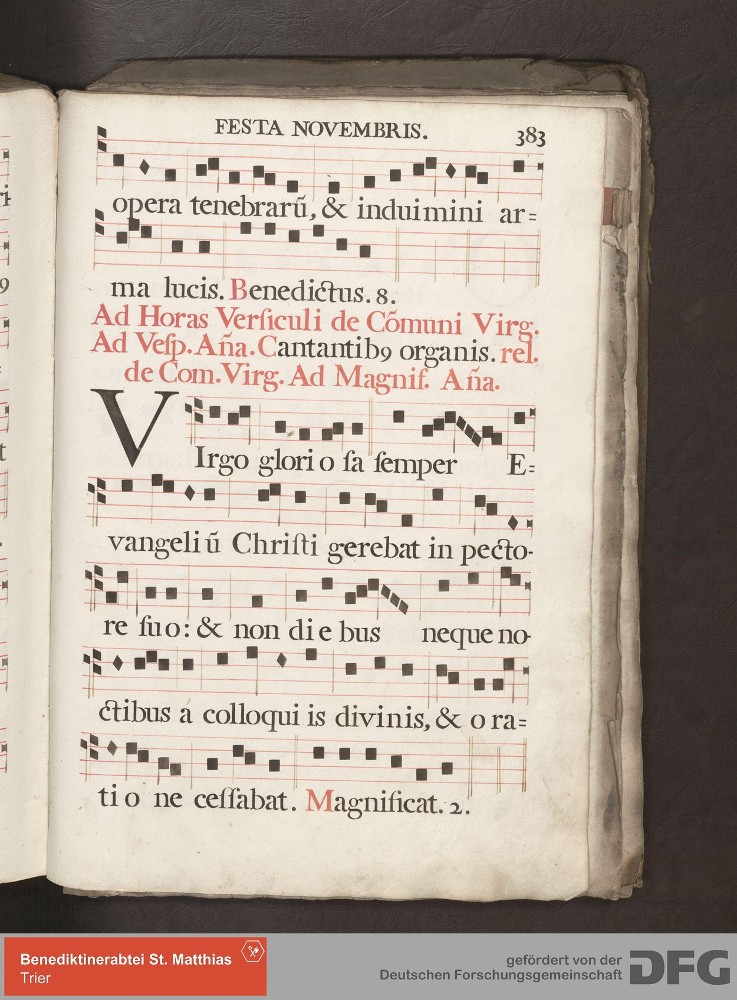 FESTA NOVEMBRIS. 383
opera tenebrarū, & induimini ar=
ma lucis. Benedictus. 8.
Ad Horas Verſiculi de Cōmuni Virg.
Ad Veſp. Aña. Cantantibꝯ organis. rel.
de Com. Virg. Ad Magnif. Aña.
VIrgo glori o ſa ſemper E=
vangeli ū Chriſti gerebat in pecto-
re ſuo: & non di e bus neque no-
ctibus á colloqui is divinis, & o ra=
ti o ne ceſſabat. Magnificat. 2.
Benediktinerabtei St. Matthias
Trier
gefördert von der
Deutschen Forschungsgemeinschaft
DFG